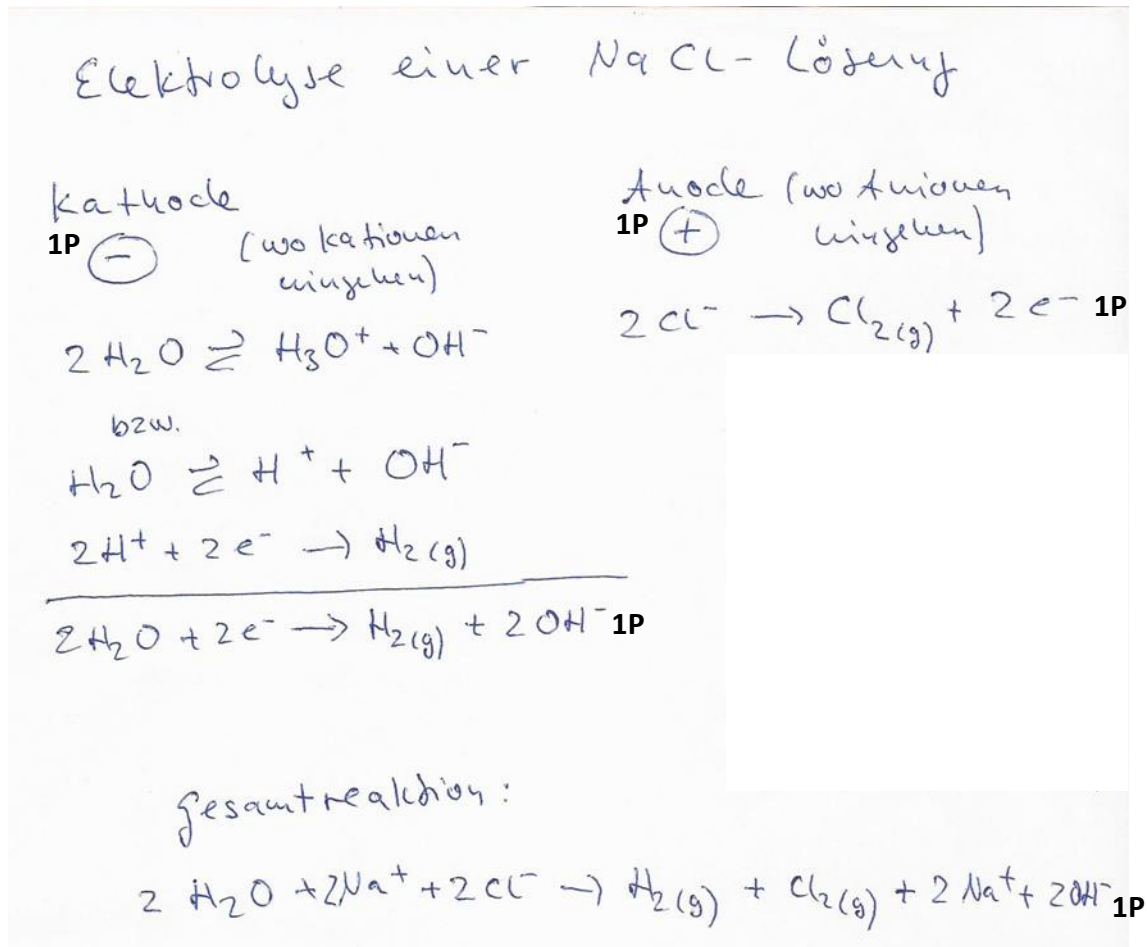 Elektrolyse einer NaCl-Lösung
Kathode
1P (-) (wo Kationen
hingehen)
2 H₂O ⇌ H₃O⁺ + OH⁻
bzw.
H₂O ⇌ H⁺ + OH⁻
2H⁺ + 2e⁻ → H₂(g)
2H₂O + 2e⁻ → H₂(g) + 2OH⁻ 1P
Anode (wo Anionen
1P (+) hingehen)
2 Cl⁻ → Cl₂(g) + 2e⁻ 1P
Gesamtreaktion:
2 H₂O + 2Na⁺ + 2Cl⁻ → H₂(g) + Cl₂(g) + 2Na⁺ + 2OH⁻ 1P